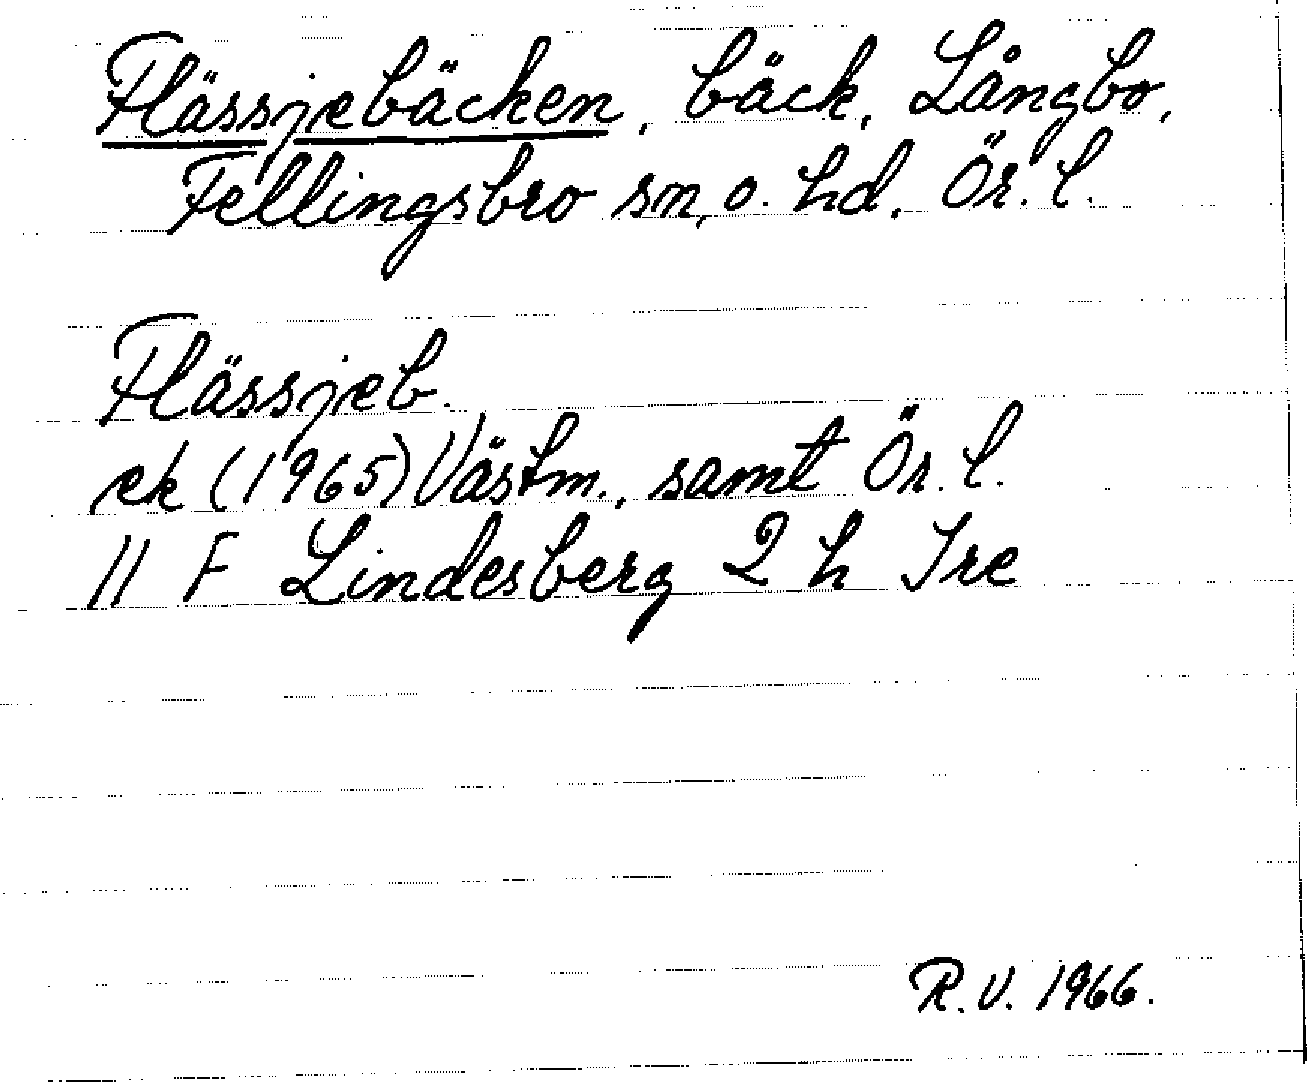 Flässjebäcken, bäck, Långbo,
Fellingsbro sn, o. hd. Ör. l.
Flässjeb.
ek (1965) Västm., samt Ör. l.
11 F Lindesberg 2 h Tre
R.V. 1966.